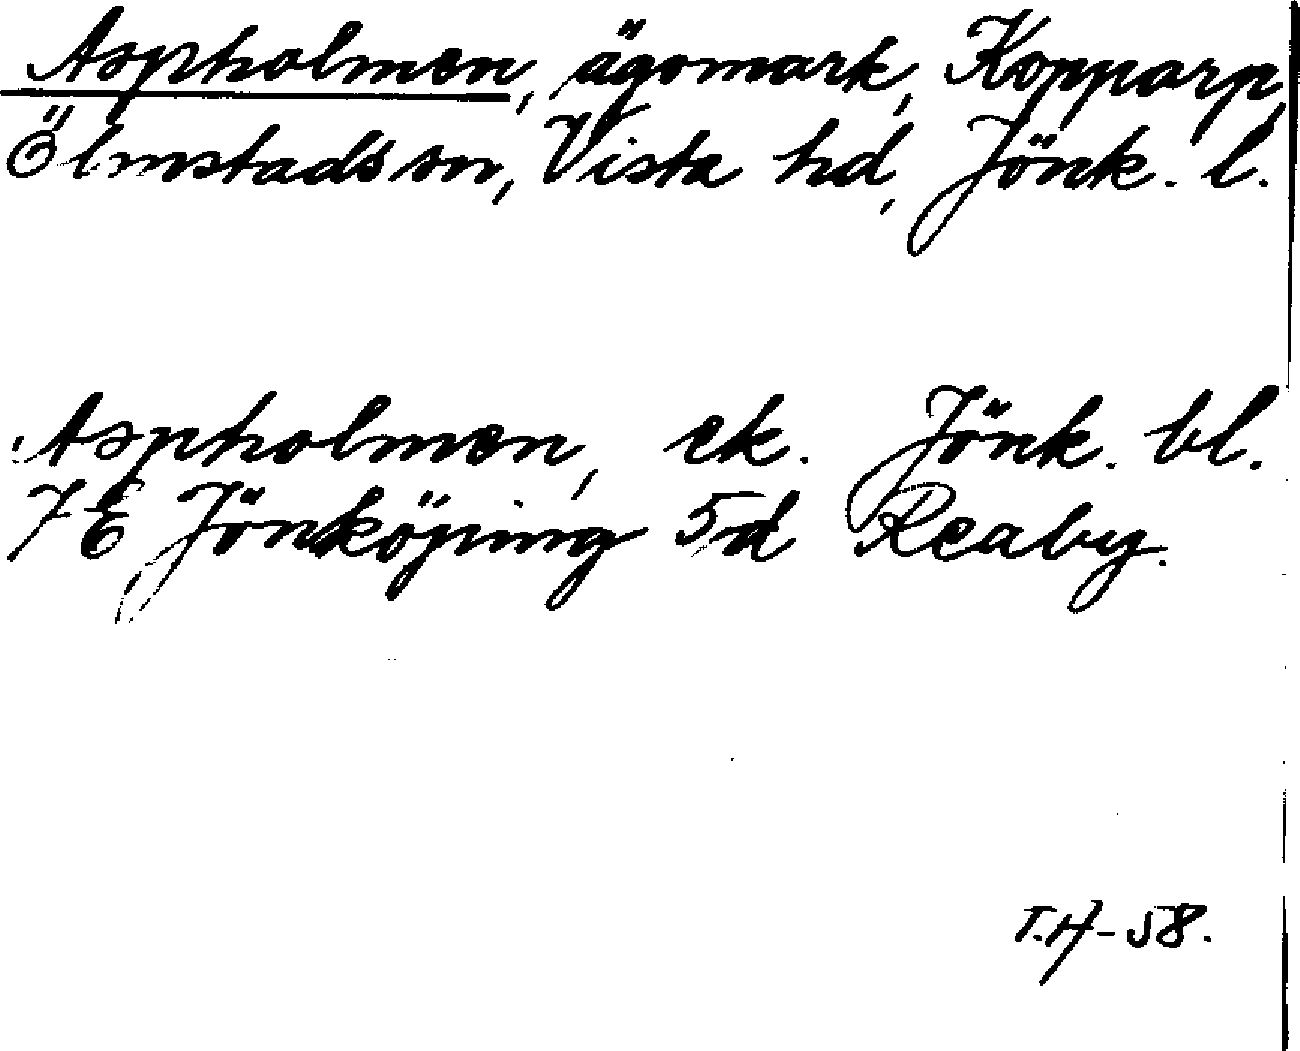 Aspholmen, ägomark, Kopparp,
Ölmstads sn, Vista hd, Jönk. l.
Aspholmen, ek. Jönk. bl.
7 E Jönköping 5d Reaby.
T.H-58.